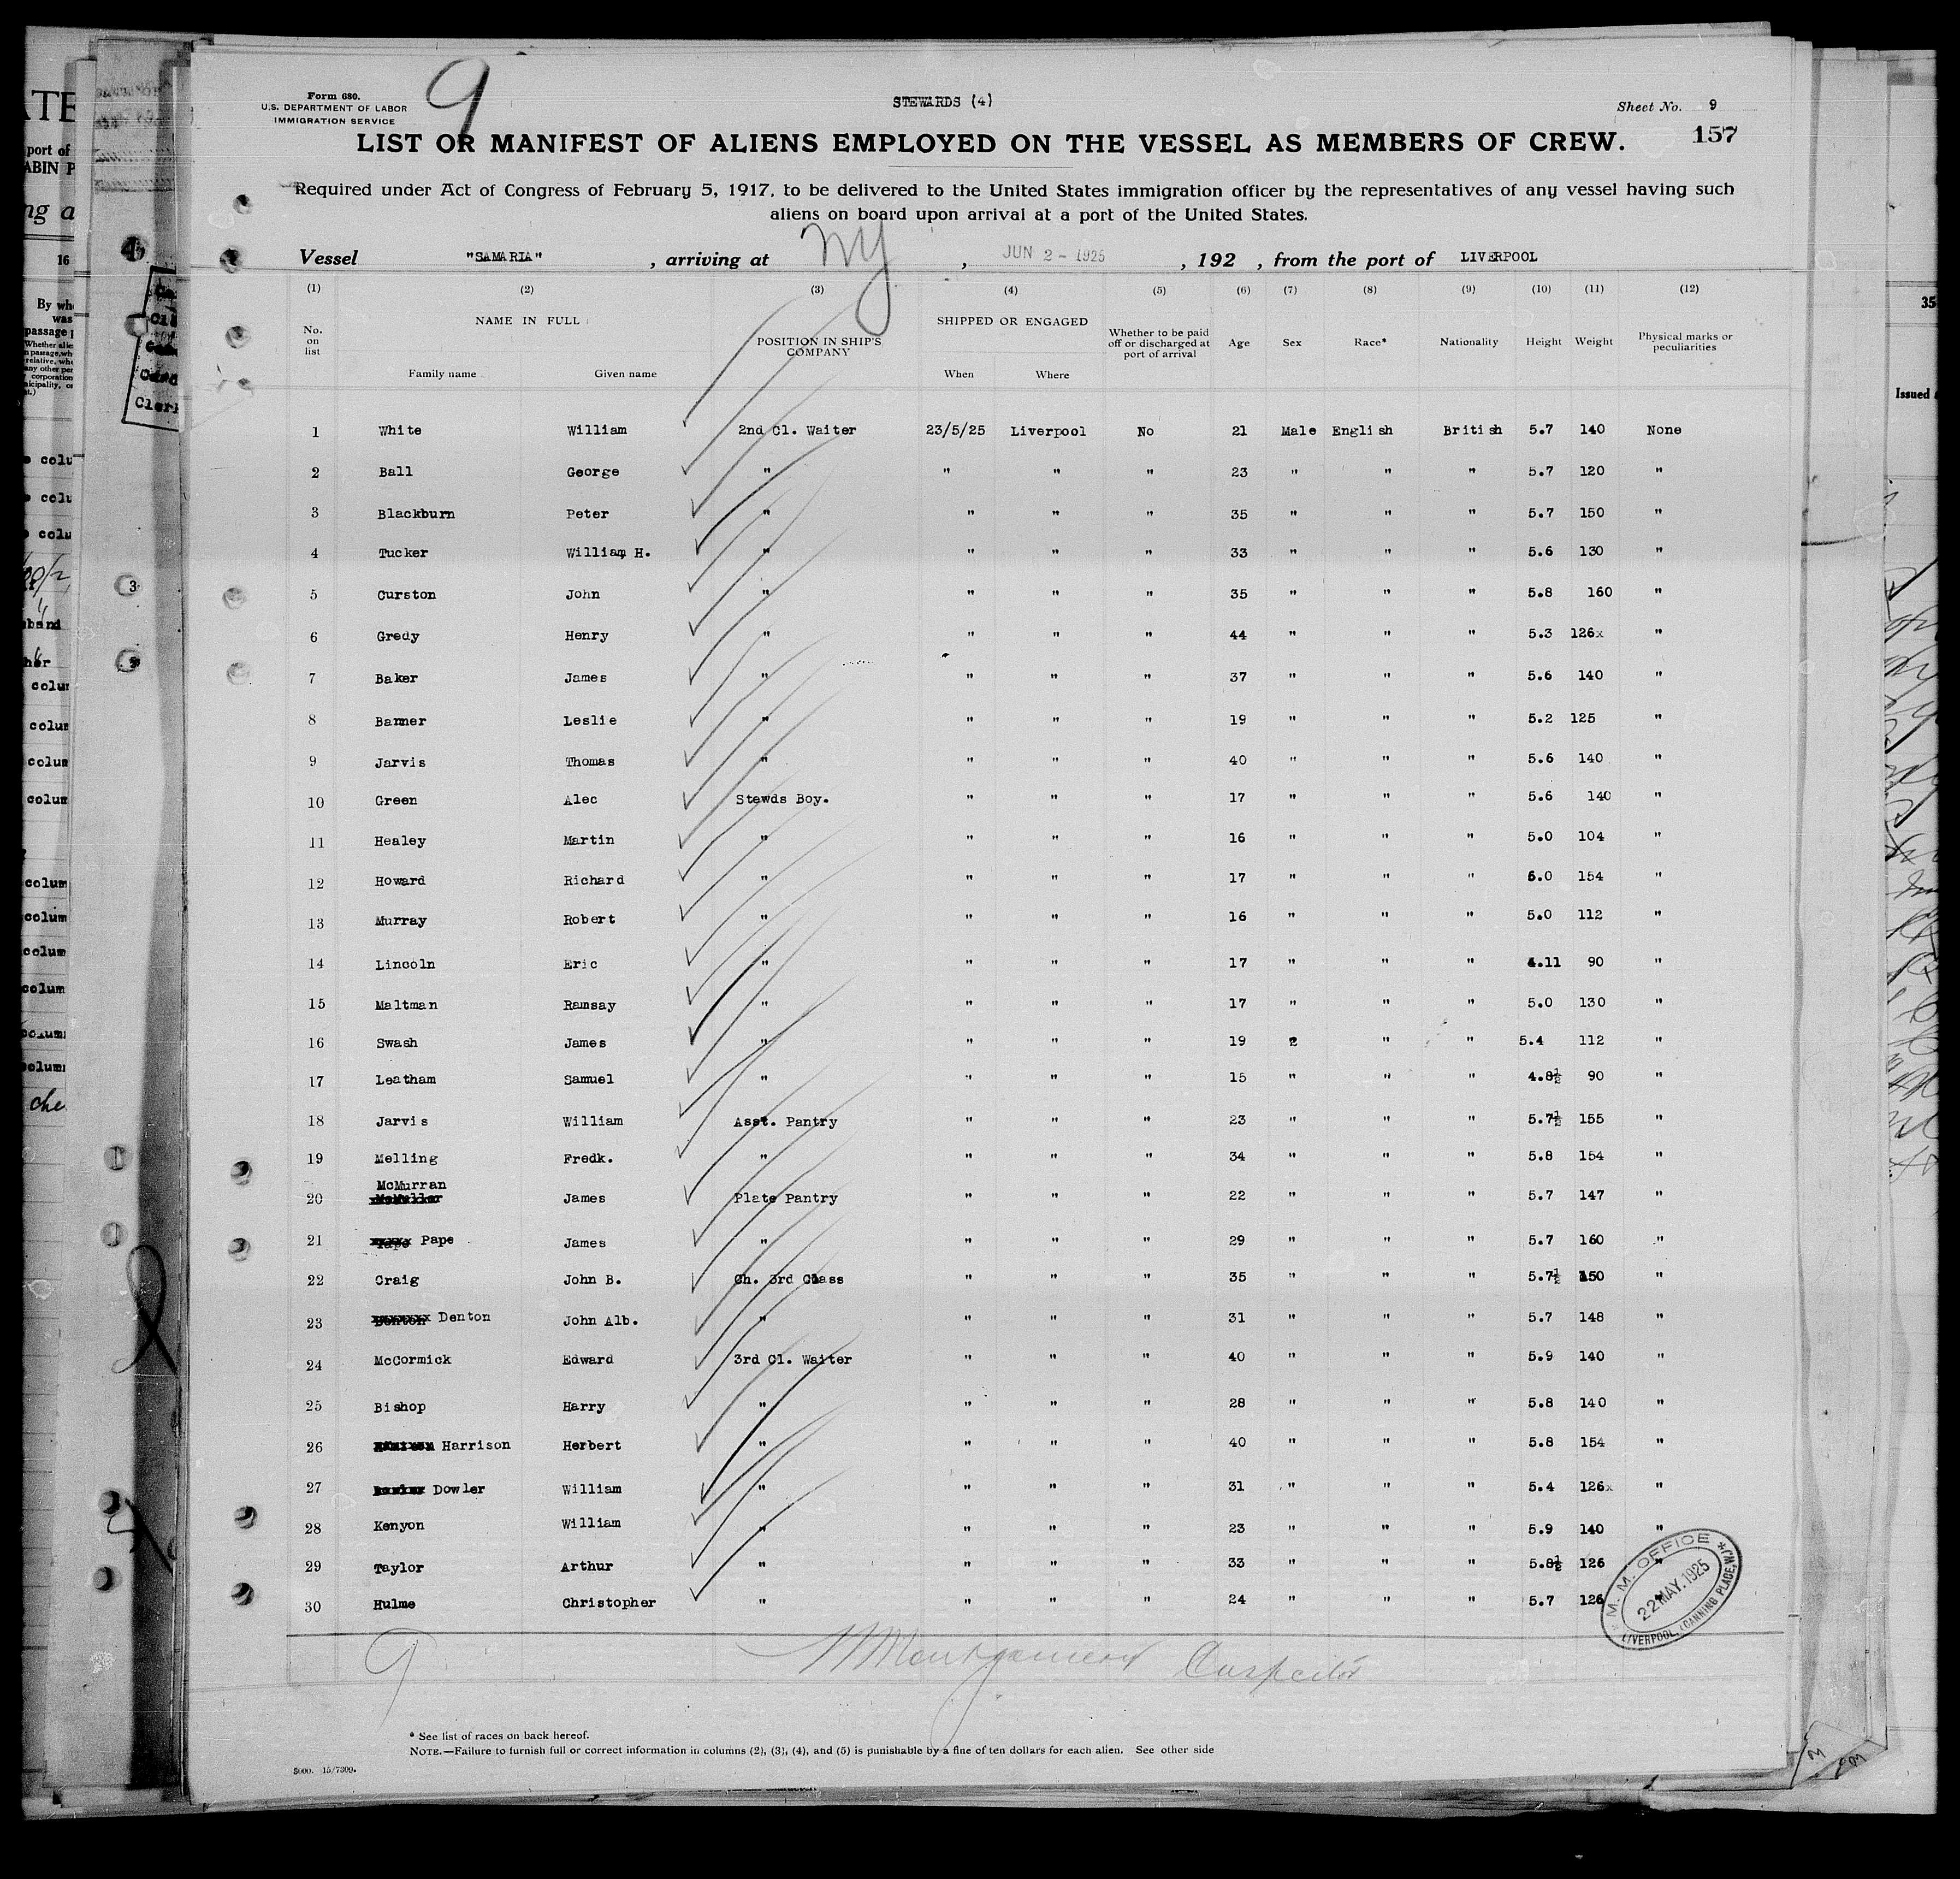 Form 680.
U.S. DEPARTMENT OF LABOR
IMMIGRATION SERVICE
9
STEWARDS (4)
Sheet No. 9
157
LIST OR MANIFEST OF ALIENS EMPLOYED ON THE VESSEL AS MEMBERS OF CREW.
Required under Act of Congress of February 5, 1917, to be delivered to the United States immigration officer by the representatives of any vessel having such
aliens on board upon arrival at a port of the United States.
Vessel "SAMARIA" , arriving at NY , JUN 2 - 1925 , 192 , from the port of LIVERPOOL
(1) (2) (3) (4) (5) (6) (7) (8) (9) (10) (11) (12)
No. on list NAME IN FULL Family name Given name POSITION IN SHIP'S COMPANY SHIPPED OR ENGAGED When Where Whether to be paid off or discharged at port of arrival Age Sex Race* Nationality Height Weight Physical marks or peculiarities
1 White William 2nd Cl. Waiter 23/5/25 Liverpool No 21 Male English British 5.7 140 None
2 Ball George " " " " 23 " " " 5.7 120 "
3 Blackburn Peter " " " " 35 " " " 5.7 150 "
4 Tucker William H. " " " " 33 " " " 5.6 130 "
5 Curston John " " " " 35 " " " 5.8 160 "
6 Gredy Henry " " " " 44 " " " 5.3 126x "
7 Baker James " " " " 37 " " " 5.6 140 "
8 Banner Leslie " " " " 19 " " " 5.2 125 "
9 Jarvis Thomas " " " " 40 " " " 5.6 140 "
10 Green Alec Stewds Boy. " " " 17 " " " 5.6 140 "
11 Healey Martin " " " " 16 " " " 5.0 104 "
12 Howard Richard " " " " 17 " " " 6.0 154 "
13 Murray Robert " " " " 16 " " " 5.0 112 "
14 Lincoln Eric " " " " 17 " " " 4.11 90 "
15 Maltman Ramsay " " " " 17 " " " 5.0 130 "
16 Swash James " " " " 19 2 " " 5.4 112 "
17 Leatham Samuel " " " " 15 " " " 4.8½ 90 "
18 Jarvis William Asst. Pantry " " " 23 " " " 5.7½ 155 "
19 Melling Fredk. " " " " 34 " " " 5.8 154 "
20 McMurran James Plate Pantry " " " 22 " " " 5.7 147 "
21 Pape James " " " " 29 " " " 5.7 160 "
22 Craig John B. Ch. 3rd Class " " " 35 " " " 5.7½ 150 "
23 Denton John Alb. " " " " 31 " " " 5.7 148 "
24 McCormick Edward 3rd Cl. Waiter " " " 40 " " " 5.9 140 "
25 Bishop Harry " " " " 28 " " " 5.8 140 "
26 Harrison Herbert " " " " 40 " " " 5.8 154 "
27 Dowler William " " " " 31 " " " 5.4 126x "
28 Kenyon William " " " " 23 " " " 5.9 140 "
29 Taylor Arthur " " " " 33 " " " 5.8½ 126 "
30 Hulme Christopher " " " " 24 " " " 5.7 126
M. M. OFFICE
22 MAY. 1925
LIVERPOOL,
9 Montgomery Inspector
* See list of races on back hereof.
NOTE.—Failure to furnish full or correct information in columns (2), (3), (4), and (5) is punishable by a fine of ten dollars for each alien. See other side